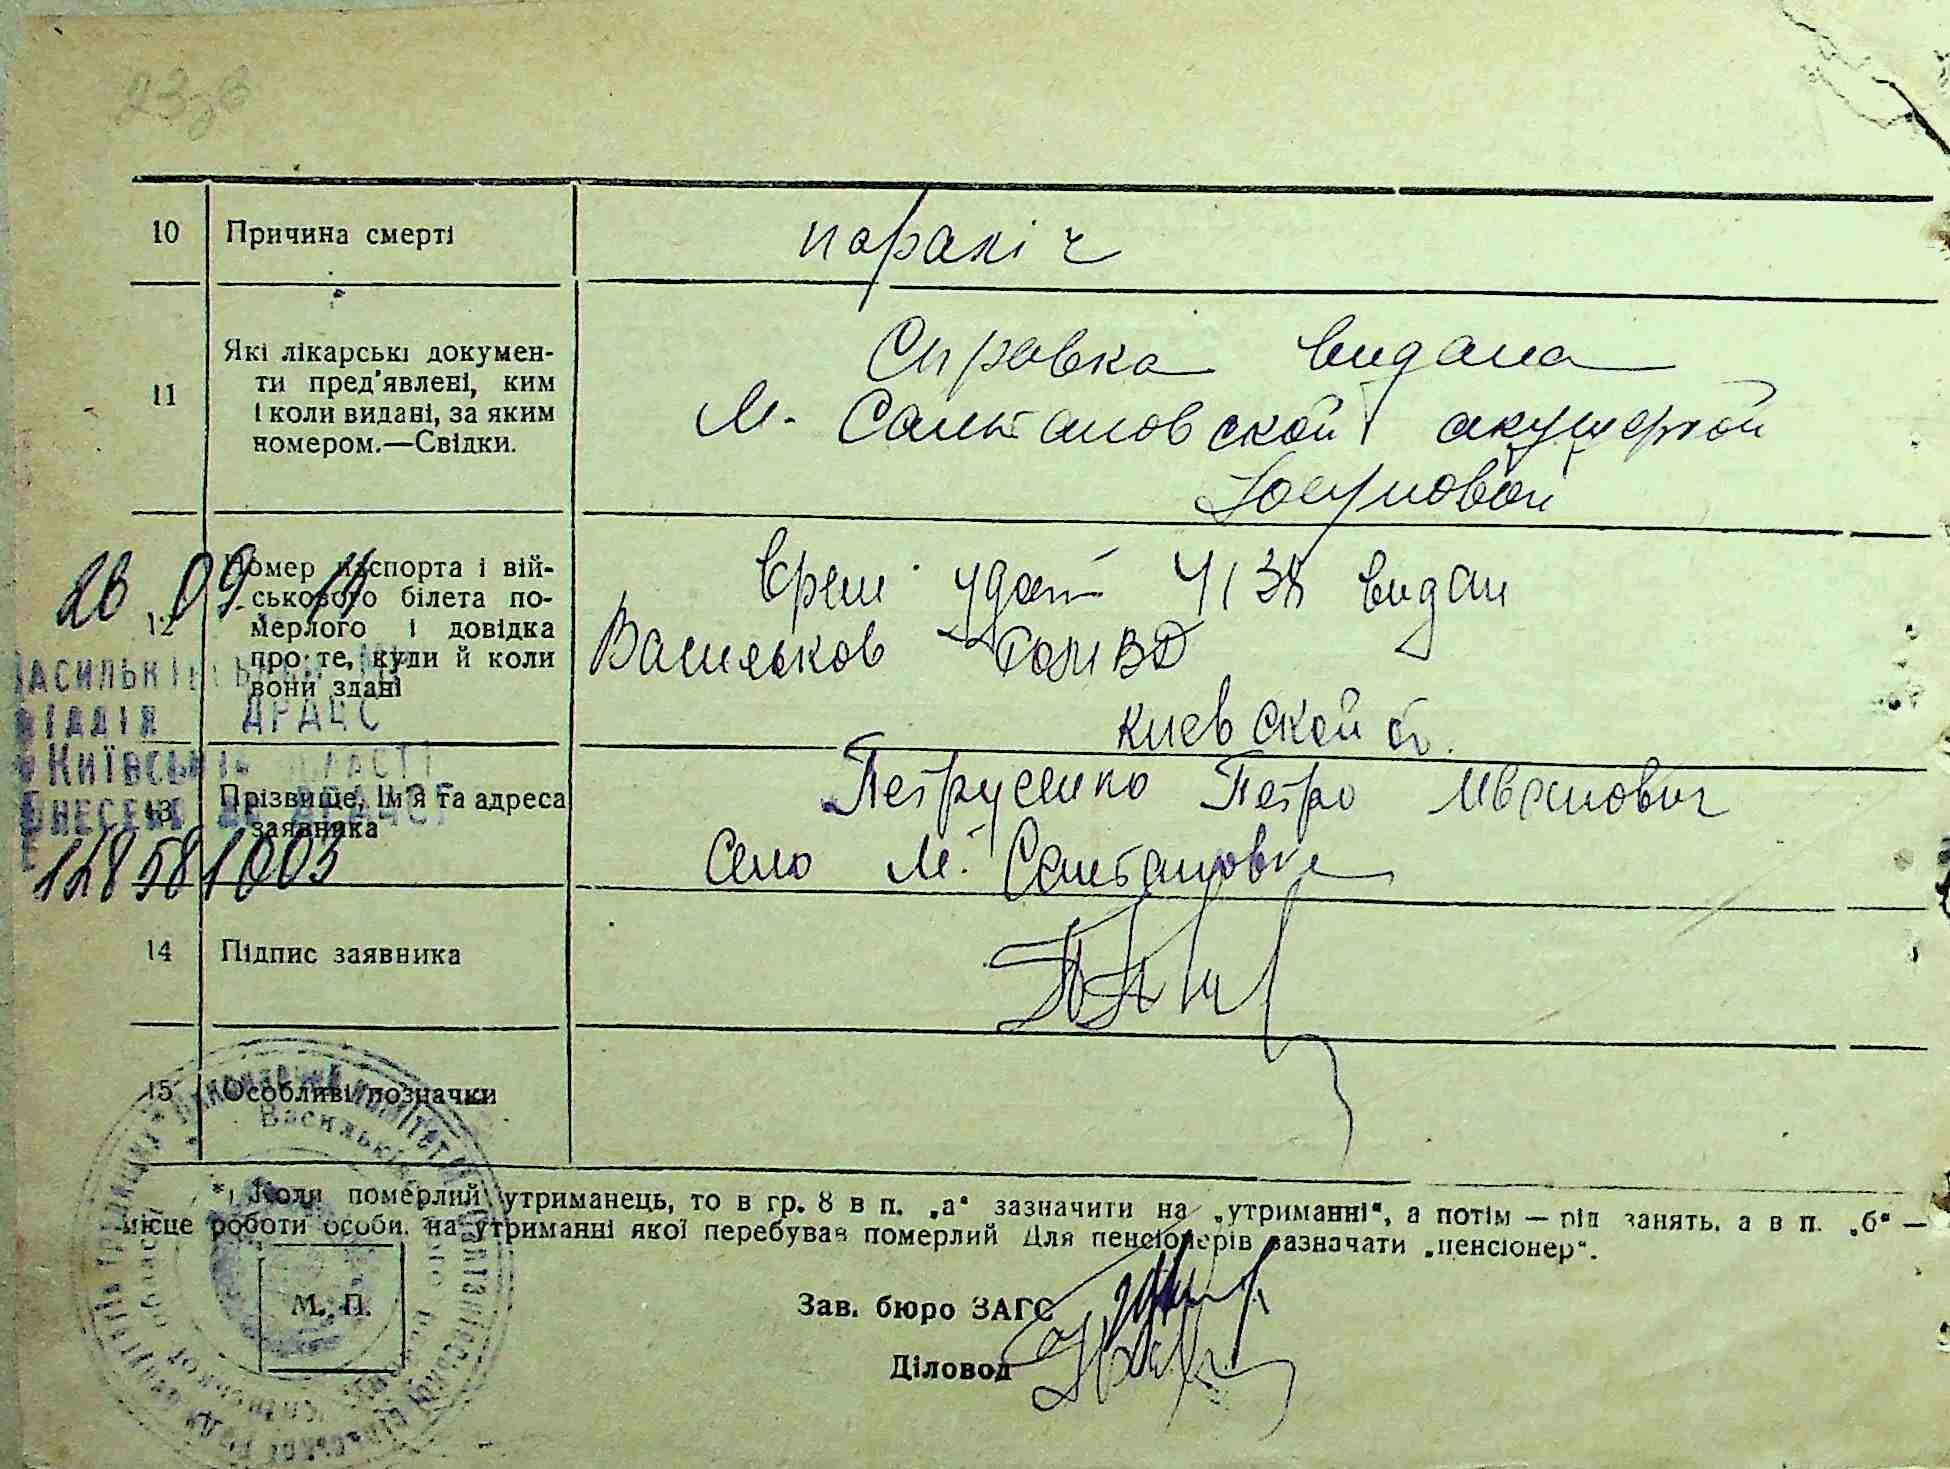 10 Причина смерті параліч
11 Які лікарські докумен-
ти пред'явлені, ким
і коли видані, за яким
номером.—Свідки.
Справка видана
М. Салтановской акушеркой
26.09.11
12 Номер паспорта і вій-
ськового білета по-
мерлого і довідка
про те, куди й коли
вони здані
врем удост 4138 видан
Васильков
Киевской о.
ДРАЦС
13 Прізвище, ім'я та адреса
заявника
Петрусенко Петро Иванович
Село М. Салтановка
128581003
14 Підпис заявника
15 Особливі позначки
*) Коли померлий утриманець, то в гр. 8 в п. „а“ зазначити на „утриманні“, а потім — рід занять, а в п. „б“ —
місце роботи особи, на утриманні якої перебував померлий Для пенсіонерів зазначати „пенсіонер“.
М. П.
Зав. бюро ЗАГС
Діловод